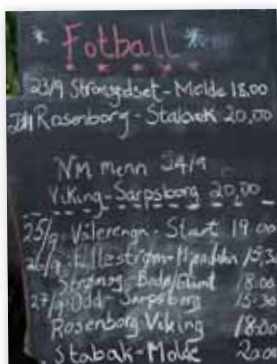 * Fotball *
23/9 Strømsgodset - Molde 18.00
Rosenborg - Stabæk 20,00
NM menn 24/9
Viking - Sarpsborg 20,00
25/9 Vålerenga - Start 19 00
26/9 Lillestrøm - Mjøndalen 15,30
Strømsg - Bodø/Glimt 18.00
27/9 Odd - Sarpsborg 15.30
Rosenborg Viking 18.00
Stabæk - Molde 20.00